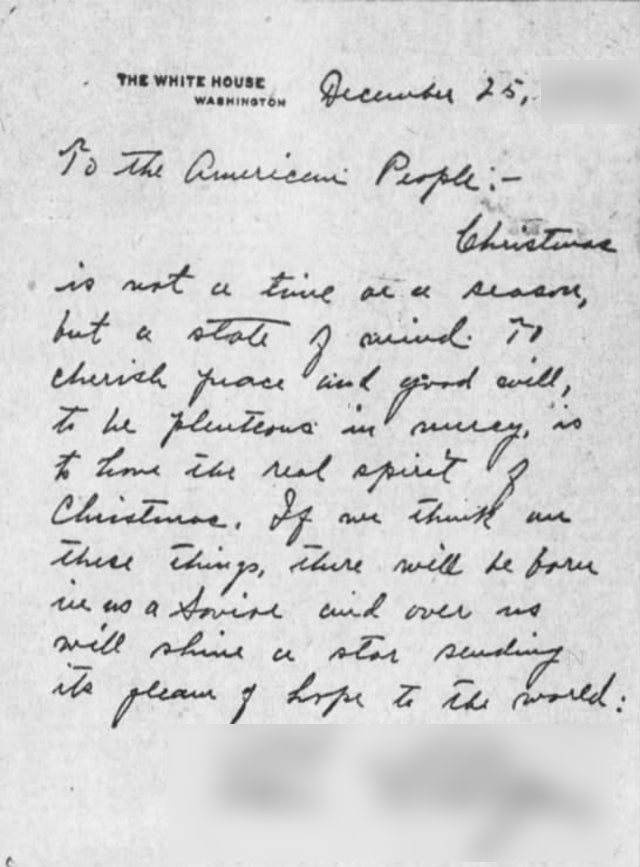 THE WHITE HOUSE
WASHINGTON
December 25,
To the American People:-
Christmas
is not a time or a season,
but a state of mind. To
cherish peace and good will,
to be plenteous in mercy, is
to have the real spirit of
Christmas. If we think on
these things, there will be born
in us a Savior and over us
will shine a star sending
its gleam of hope to the world.